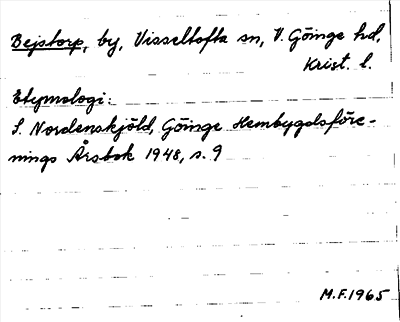 Bejstorp, by, Visseltofta sn, V. Göinge hd,
Krist. l.
Etymologi:
S. Nordenskjöld, Göinge Hembygdsföre-
nings Årsbok 1948, s. 9
M.F. 1965